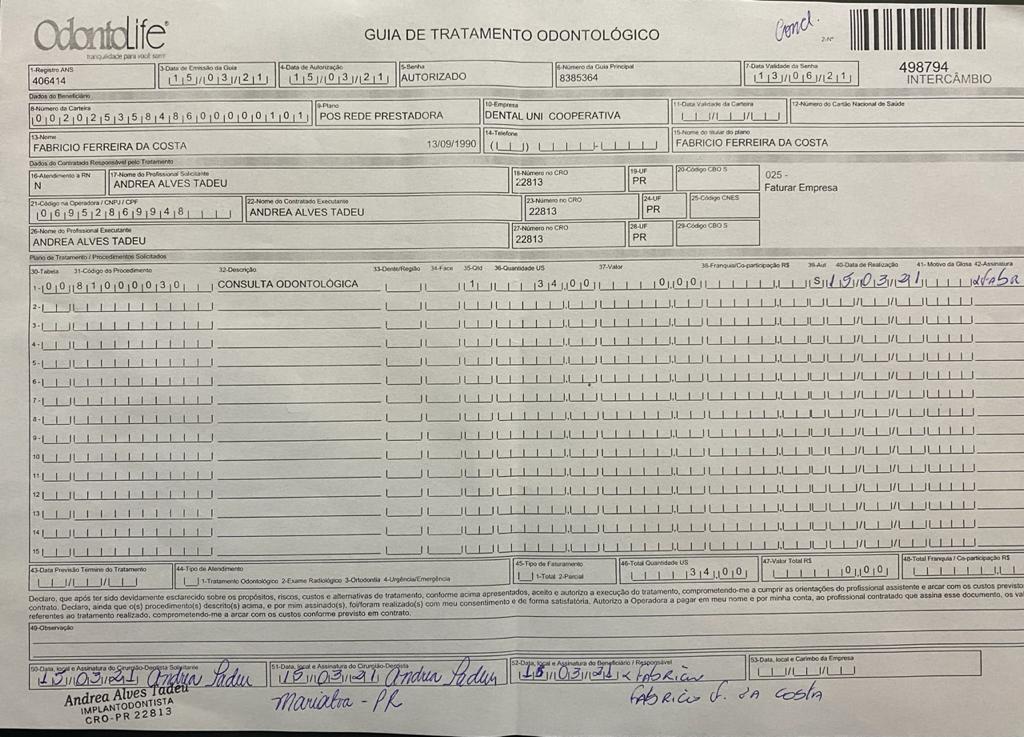 OdontoLife
tranquilidade para você sorrir
GUIA DE TRATAMENTO ODONTOLÓGICO
Cond.
2-Nº
1-Registro ANS 406414
3-Data de Emissão da Guia 15/03/21
4-Data de Autorização 15/03/21
5-Senha AUTORIZADO
6-Número da Guia Principal 8385364
7-Data Validade da Senha 13/06/21
498794
INTERCÂMBIO
Dados do Beneficiário
8-Número da Carteira 00202535848600000101
9-Plano POS REDE PRESTADORA
10-Empresa DENTAL UNI COOPERATIVA
11-Data Validade da Carteira
12-Número do Cartão Nacional de Saúde
13-Nome FABRICIO FERREIRA DA COSTA 13/09/1990
14-Telefone
15-Nome do titular do plano FABRICIO FERREIRA DA COSTA
Dados do Contratado Responsável pelo Tratamento
16-Atendimento a RN N
17-Nome do Profissional Solicitante ANDREA ALVES TADEU
18-Número no CRO 22813
19-UF PR
20-Código CBO S
025 -
Faturar Empresa
21-Código na Operadora / CNPJ / CPF 06952869948
22-Nome do Contratado Executante ANDREA ALVES TADEU
23-Número no CRO 22813
24-UF PR
25-Código CNES
26-Nome do Profissional Executante ANDREA ALVES TADEU
27-Número no CRO 22813
28-UF PR
29-Código CBO S
Plano de Tratamento / Procedimentos Solicitados
30-Tabela 31-Código do Procedimento 32-Descrição 33-Dente/Região 34-Face 35-Qtd 36-Quantidade US 37-Valor 38-Franquia/Co-participação R$ 39-Aut 40-Data de Realização 41- Motivo da Glosa 42-Assinatura
1- 00 81000030 CONSULTA ODONTOLÓGICA 1 34,00 0,00 S 15/03/21
2-
3-
4-
5-
6-
7-
8-
9-
10
11
12
13
14
15
43-Data Previsão Término do Tratamento
44-Tipo de Atendimento
1-Tratamento Odontológico 2-Exame Radiológico 3-Ortodontia 4-Urgência/Emergência
45-Tipo de Faturamento
1-Total 2-Parcial
46-Total Quantidade US 34,00
47-Valor Total R$ 0,00
48-Total Franquia / Co-participação R$
Declaro, que após ter sido devidamente esclarecido sobre os propósitos, riscos, custos e alternativas de tratamento, conforme acima apresentados, aceito e autorizo a execução do tratamento, comprometendo-me a cumprir as orientações do profissional assistente e arcar com os custos previsto
contrato. Declaro, ainda que o(s) procedimento(s) descrito(s) acima, e por mim assinado(s), foi/foram realizado(s) com meu consentimento e de forma satisfatória. Autorizo a Operadora a pagar em meu nome e por minha conta, ao profissional contratado que assina esse documento, os va
referentes ao tratamento realizado, comprometendo-me a arcar com os custos conforme previsto em contrato.
49-Observação
50-Data, local e Assinatura do Cirurgião-Dentista Solicitante
15/03/21 Andrea Tadeu
51-Data, local e Assinatura do Cirurgião-Dentista
15/03/21 Andrea Tadeu
52-Data, local e Assinatura do Beneficiário / Responsável
15/03/21 x Fabricio
53-Data, local e Carimbo da Empresa
Andrea Alves Tadeu
IMPLANTODONTISTA
CRO-PR 22813
Marialva - PR
FABRICIO F. DA COSTA